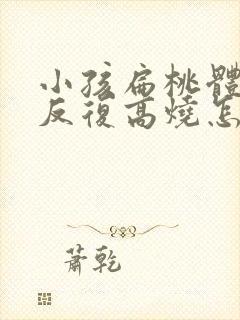 小孩扁桃體
反復高燒怎
蕭乾